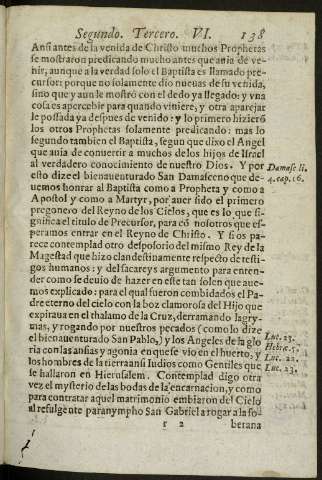 Segundo. Tercero. VI. 138
Ansi antes de la venida de Christo muchos Prophetas
se mostraron predicando mucho antes que ania de ve-
nir, aunque a la verdad solo el Baptista es llamado pre-
cursor: porque no solamente dio nueuas de su venida,
sino que y aun le mostró con el dedo ya llegado: y vna
cosa es apercebir para quando viniere, y otra aparejar
le possada ya despues de venido: y lo primero hizierõ
los otros Prophetas solamente predicando: mas lo
segundo tambien el Baptista, segun que dixo el Angel
que auia de conuertir a muchos de los hijos de Israel
al verdadero conocimiento de nuestro Dios. Y por
esto dize el bienauenturado San Damasceno que de-
uemos honrar al Baptista como a Propheta y como a
Apostol y como a Martyr, por auer sido el primero
pregonero del Reyno de los Cielos, que es lo que si-
gnifica el titulo de Precursor, para cõ nosotros que es-
peramos entrar en el Reyno de Christo. Y si os pa-
rece contemplad otro desposorio del mismo Rey de la
Magestad que hizo clandestinamente respecto de testi-
gos humanos: y del sacareys argumento para enten-
der como se deuio de hazer en este tan solen que aue-
mos explicado: para el qual fueron combidados el Pa-
dre eterno del cielo con la boz clamorosa del Hijo que
expiraua en el thalamo de la Cruz, derramando lagry-
mas, y rogando por nuestros pecados (como lo dize
el bienauenturado San Pablo,) y los Angeles de la glo
ria con las ansias y agonia en que se vio en el huerto, y
los hombres de la tierra ansi Iudios como Gentiles que
se hallaron en Hierusalem. Contemplad digo otra
vez el mysterio de las bodas de la encarnacion, y como
para contratar aquel matrimonio embiaron del Cielo
al refulgente paranympho San Gabriel a rogar a la so-
r 2 berana
Damasc. li.
4. cap. 16.
Luc. 23.
Hebræ. 5.
Luc. 22.
Luc. 23.